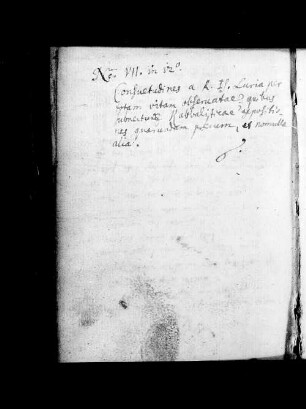 No. VII. in 12o.
Consuetudines a R. Is. Luria per
totam vitam observatae, quibus
subnectuntur Kabbalisticae expositio-
nes quarundam precum, et nonnulla
alia.